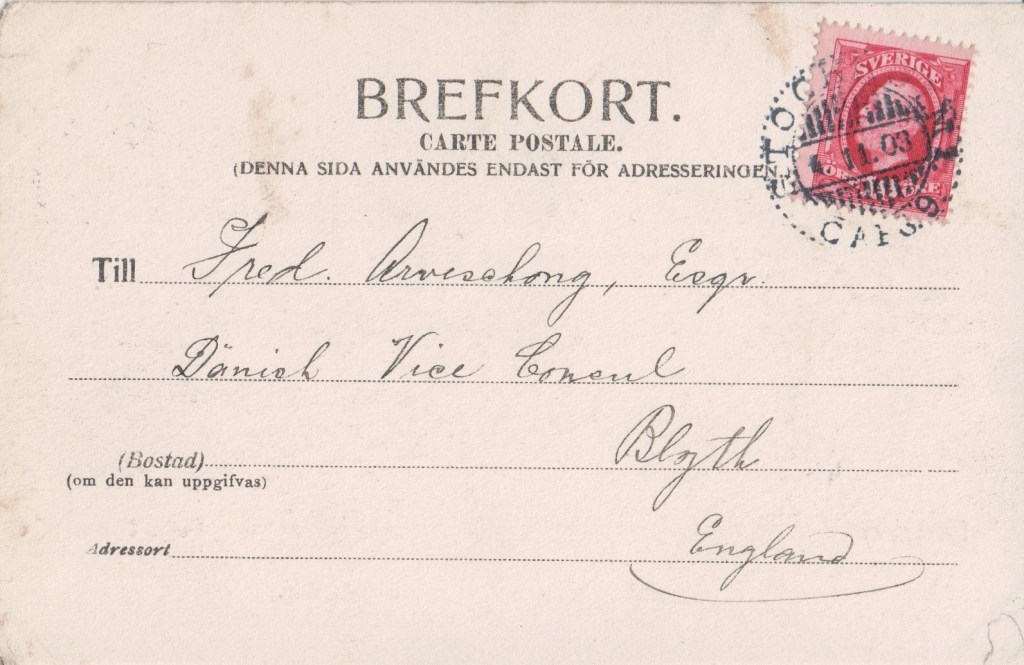 BREFKORT.
CARTE POSTALE.
(DENNA SIDA ANVÄNDES ENDAST FÖR ADRESSERINGEN
SVERIGE
11.03
Till Fred. Esqr.
Dänish Vice Consul
(Bostad) Blyth
(om den kan uppgifvas)
Adressort England